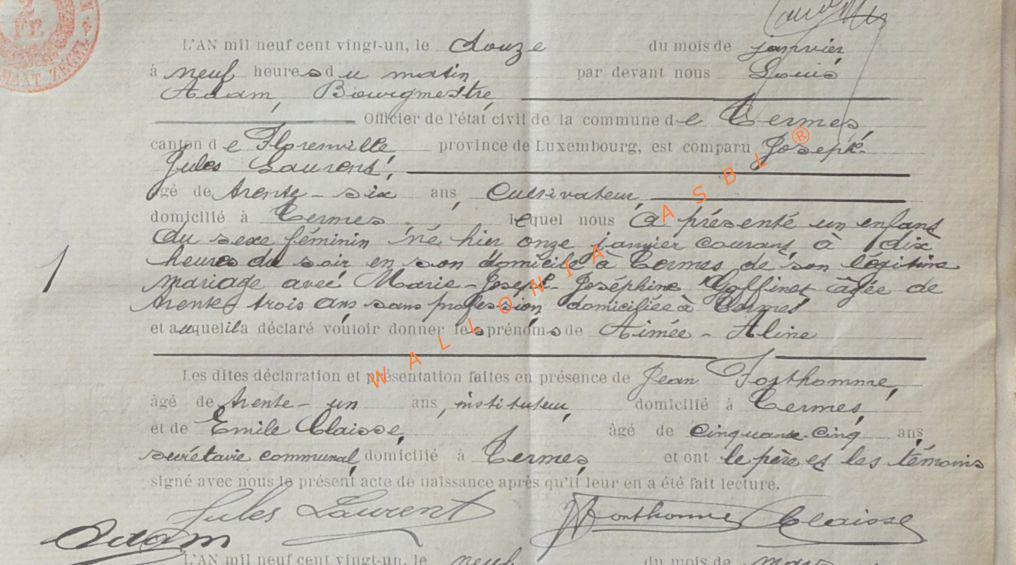 2
FR
L'AN mil neuf cent vingt-un, le douze du mois de janvier
à neuf heures du matin, par devant nous Louis
Adam, Bourgmestre,
Officier de l'état civil de la commune de Termes,
canton de Florenville province de Luxembourg, est comparu Joseph-
Jules Laurent,
âgé de trente-six ans, cultivateur,
domicilié à Termes lequel nous a présenté un enfant
du sexe féminin né hier onze janvier courant, à dix
heures du soir en son domicile à Termes de son légitime
mariage avec Marie-Joseph-Joséphine Goffinet âgée de
trente trois ans sans profession domiciliée à Termes
et auquel il a déclaré vouloir donner les prénoms de Aimée-Aline
Les dites déclaration et présentation faites en présence de Jean Forthomme,
âgé de trente-un ans, instituteur, domicilié à Termes,
et de Emile Claisse, âgé de cinquante-cinq ans
secrétaire communal, domicilié à Termes, et ont le père et les témoins
signé avec nous le présent acte de naissance après qu'il leur en a été fait lecture.
Jules Laurent JForthomme Claisse
Adam
L'AN mil neuf cent vingt-un, le neuf du mois de mars
1
WALLONIA ASBL ®